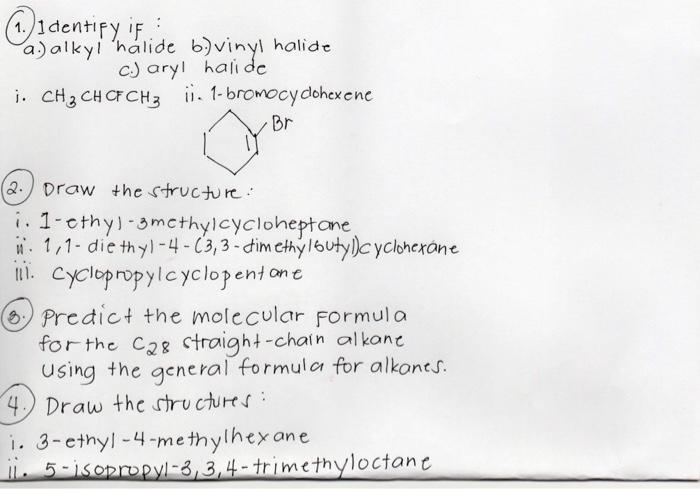 1. Identify if :
a.) alkyl halide b.) vinyl halide
c.) aryl halide
i. CH3CHCFCH3 ii. 1-bromocyclohexene
Br
2. Draw the structure :
i. 1-ethyl-3methylcycloheptane
ii. 1,1-diethyl-4-(3,3-dimethylbutyl)cyclohexane
iii. cyclopropylcyclopentane
3. Predict the molecular formula
for the C28 straight-chain alkane
using the general formula for alkanes.
4. Draw the structures :
i. 3-ethyl-4-methylhexane
ii. 5-isopropyl-3,3,4-trimethyloctane